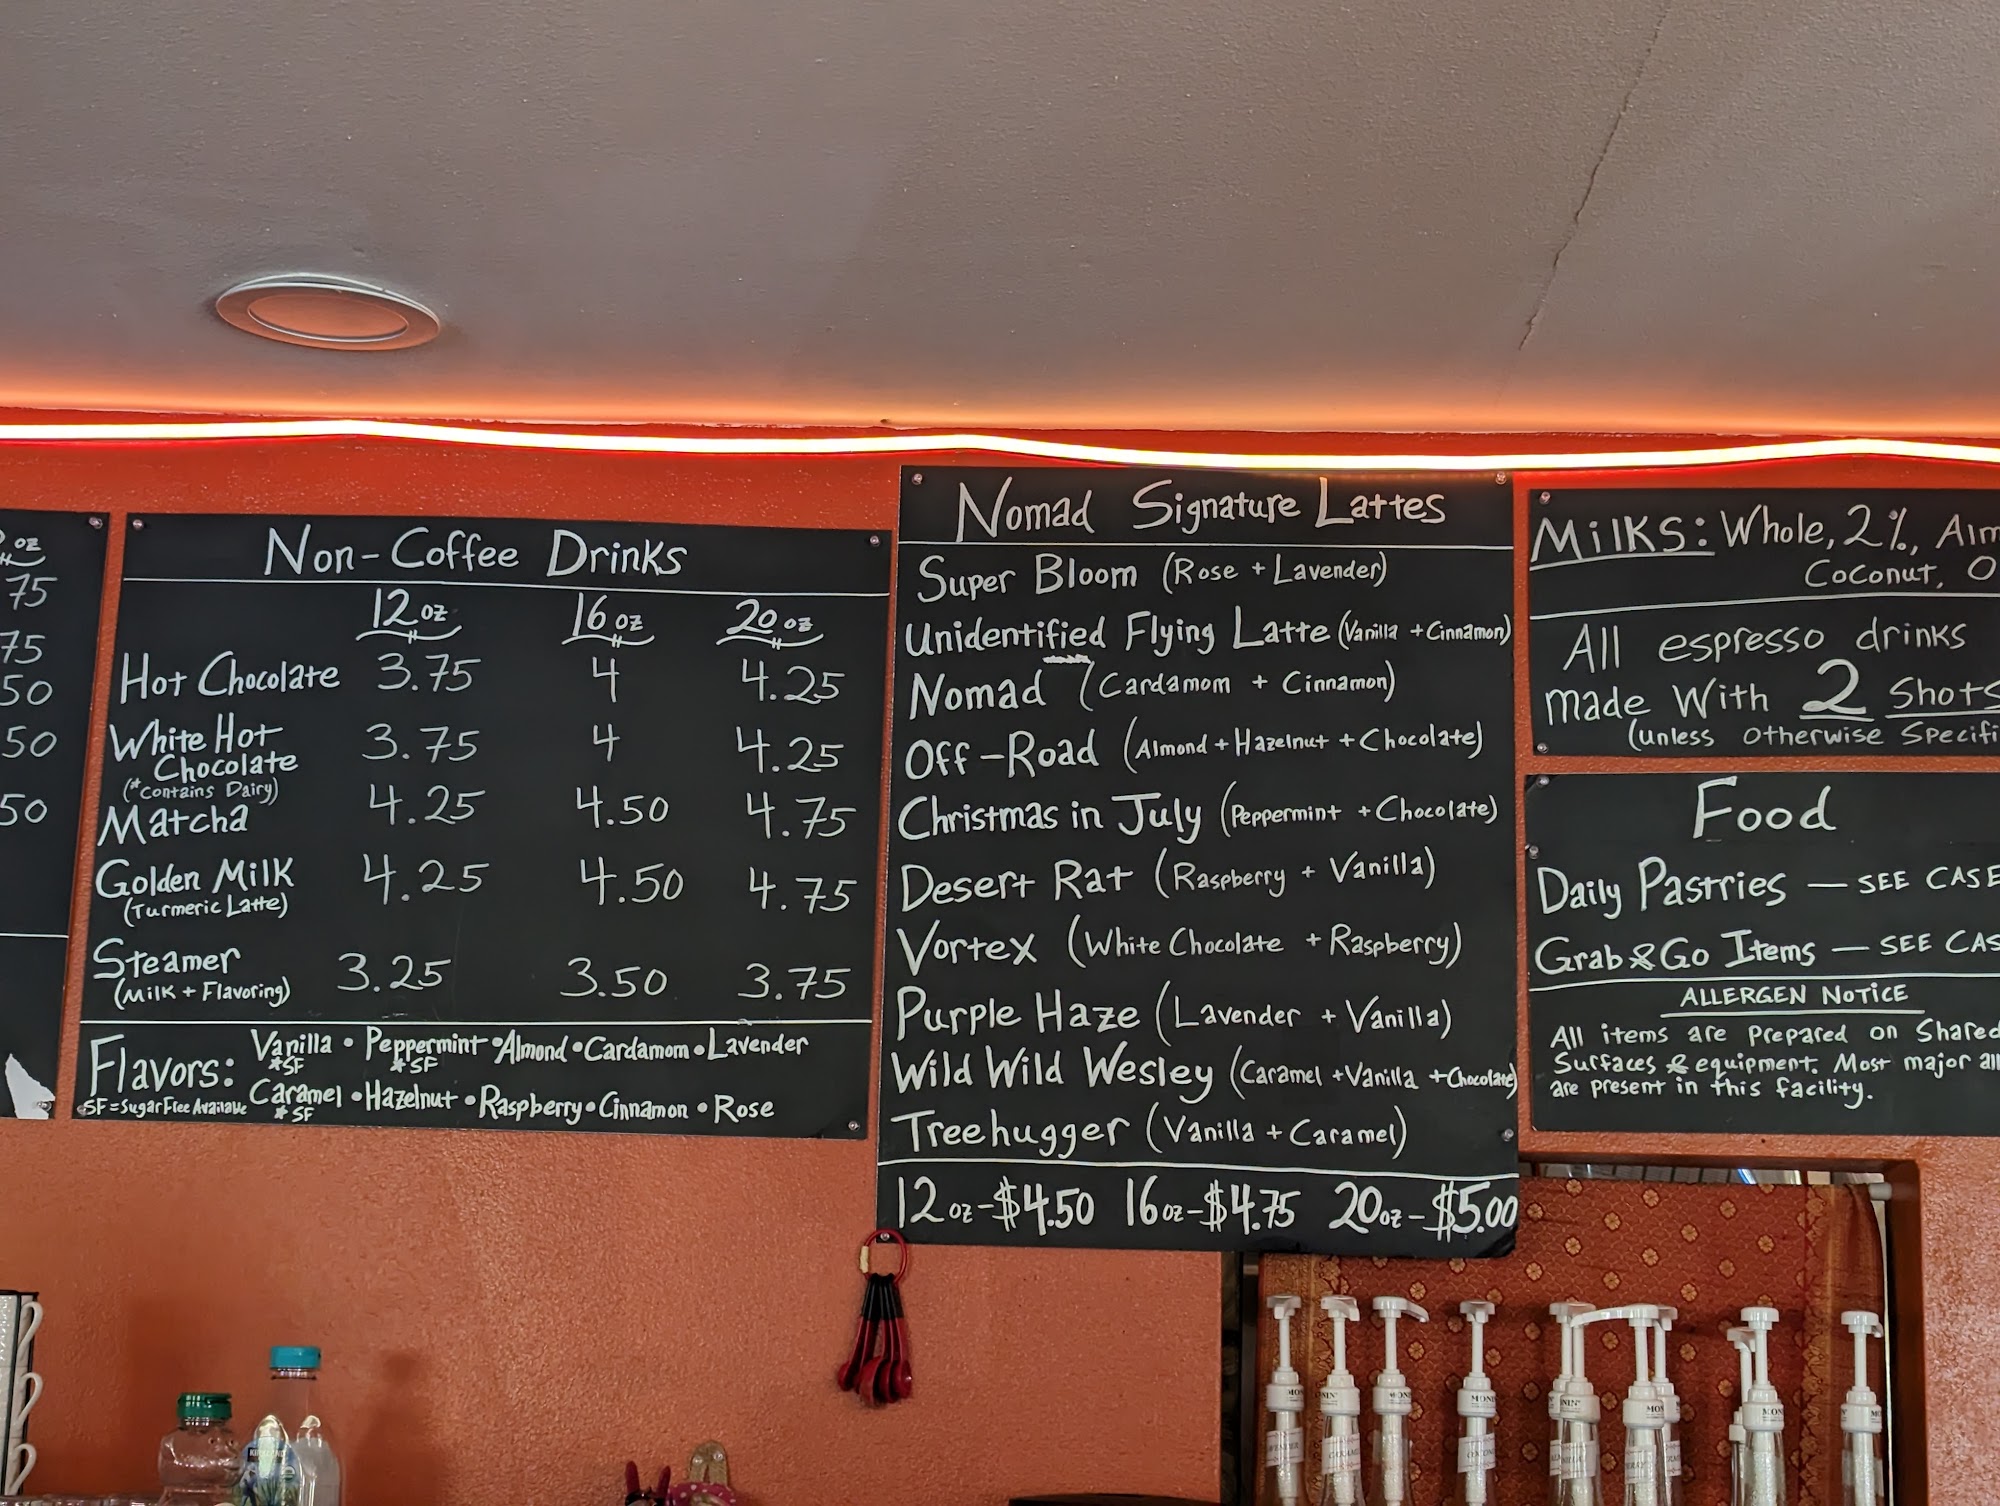 oz
75
75
50
50
50
Non-Coffee Drinks
12 oz 16 oz 20 oz
Hot Chocolate 3.75 4 4.25
White Hot Chocolate 3.75 4 4.25
(*Contains Dairy)
Matcha 4.25 4.50 4.75
Golden Milk 4.25 4.50 4.75
(Turmeric Latte)
Steamer 3.25 3.50 3.75
(Milk + Flavoring)
Flavors: Vanilla • Peppermint • Almond • Cardamom • Lavender
*SF *SF
SF = Sugar Free Available Caramel • Hazelnut • Raspberry • Cinnamon • Rose
*SF
Nomad Signature Lattes
Super Bloom (Rose + Lavender)
Unidentified Flying Latte (Vanilla + Cinnamon)
Nomad (Cardamom + Cinnamon)
Off-Road (Almond + Hazelnut + Chocolate)
Christmas in July (Peppermint + Chocolate)
Desert Rat (Raspberry + Vanilla)
Vortex (White Chocolate + Raspberry)
Purple Haze (Lavender + Vanilla)
Wild Wild Wesley (Caramel + Vanilla + Chocolate)
Treehugger (Vanilla + Caramel)
12 oz - $4.50 16 oz - $4.75 20 oz - $5.00
Milks: Whole, 2%, Alm
Coconut, O
All espresso drinks
made with 2 Shots
(unless otherwise specifi
Food
Daily Pastries — SEE CASE
Grab & Go Items — SEE CAS
ALLERGEN NOTICE
All items are prepared on shared
surfaces & equipment. Most major all
are present in this facility.
MONIN